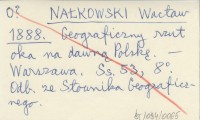 O? NAŁKOWSKI Wacław
1888. Geograficzny rzut
oka na dawną Polskę. —
Warszawa, Ss. 53, 8°.
Odb. ze Słownika Geografice-
znego.